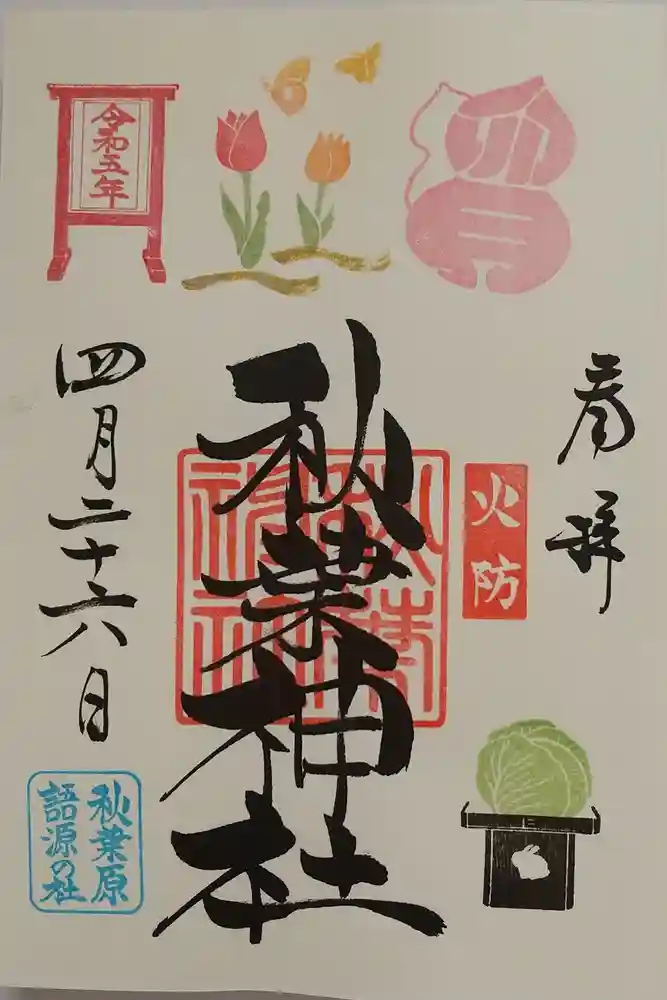 奉拝
火防
秋葉神社
秋葉神社
令和五年
四月二十六日
秋葉原
語源の社